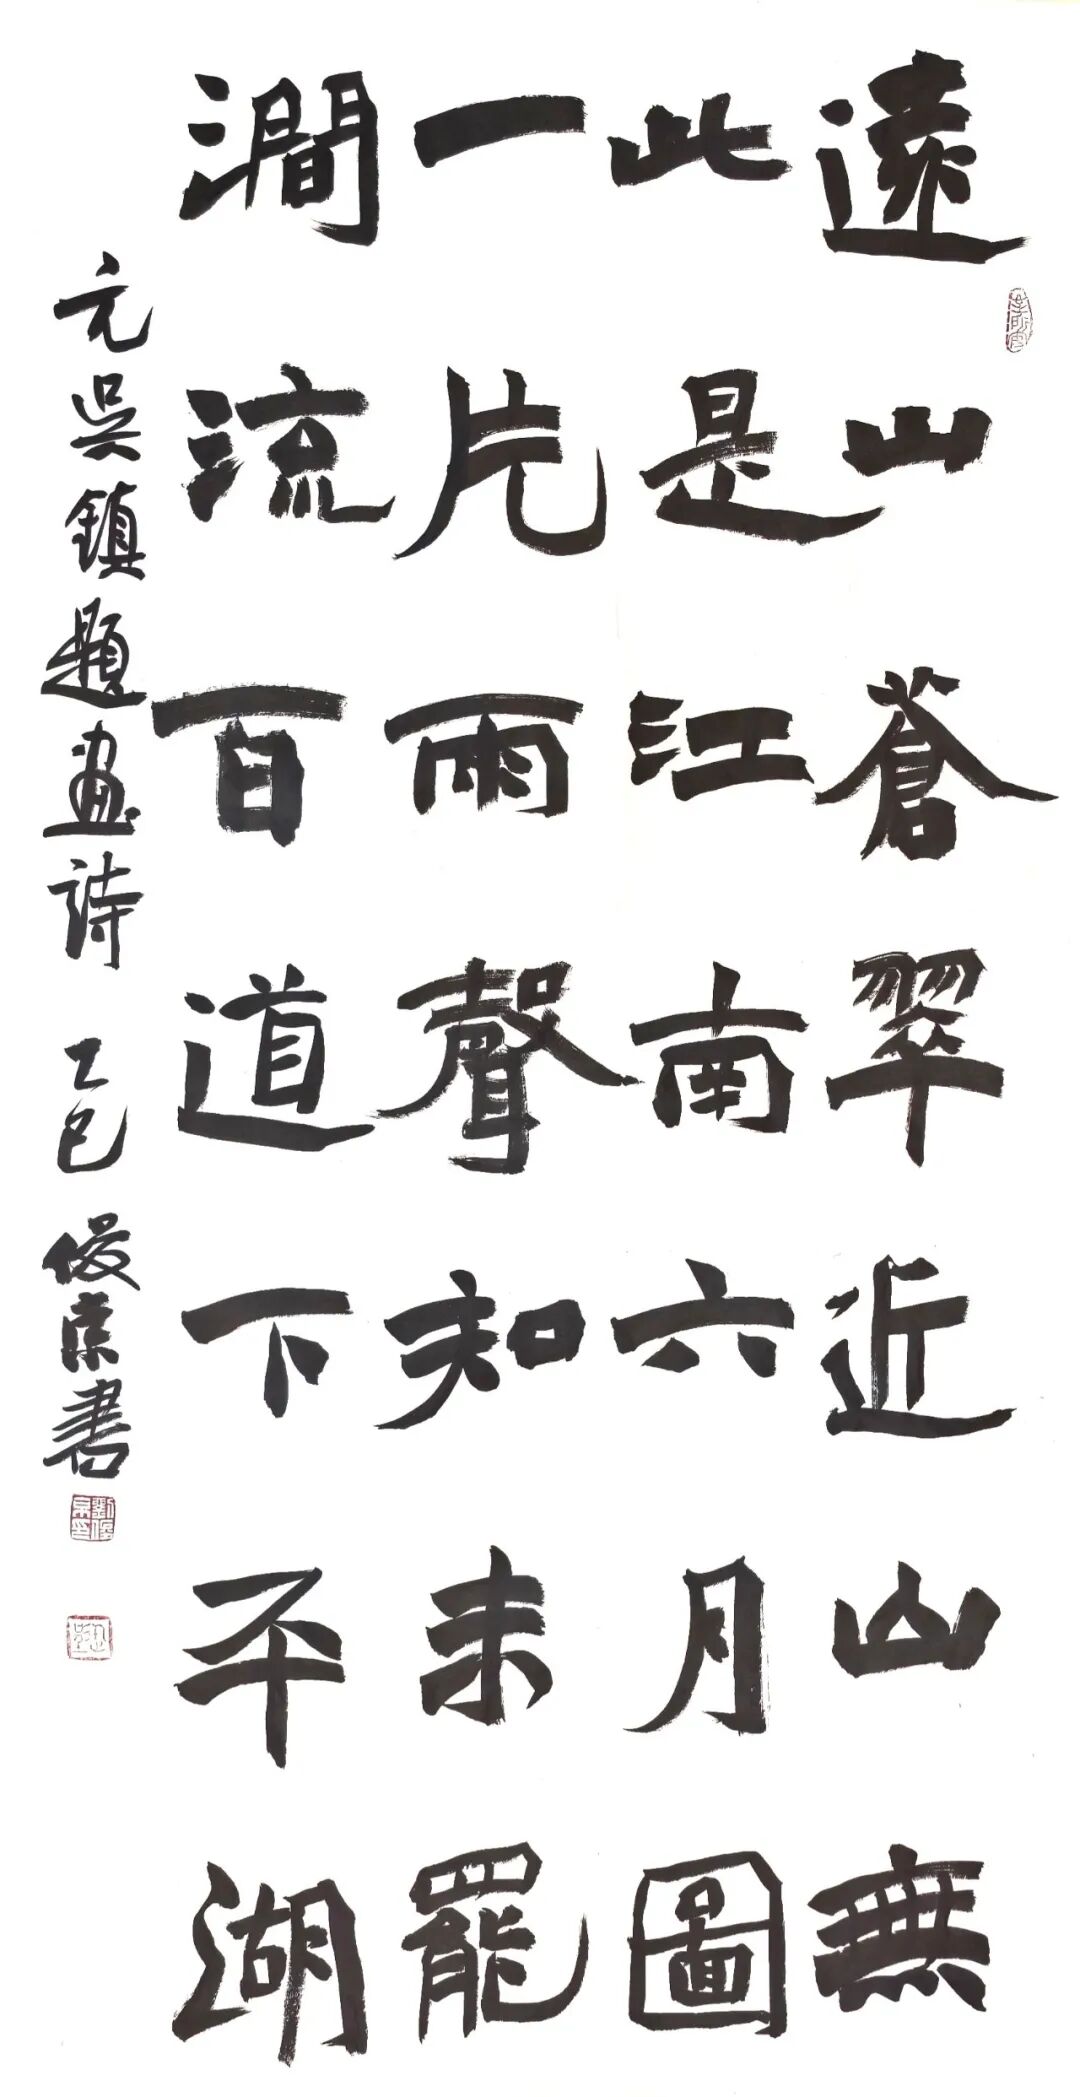 遠山蒼翠近山無
此是江南六月圖
一片雨聲知未罷
澗流百道下平湖
元吳鎮題畫詩 乙巳 俊京書